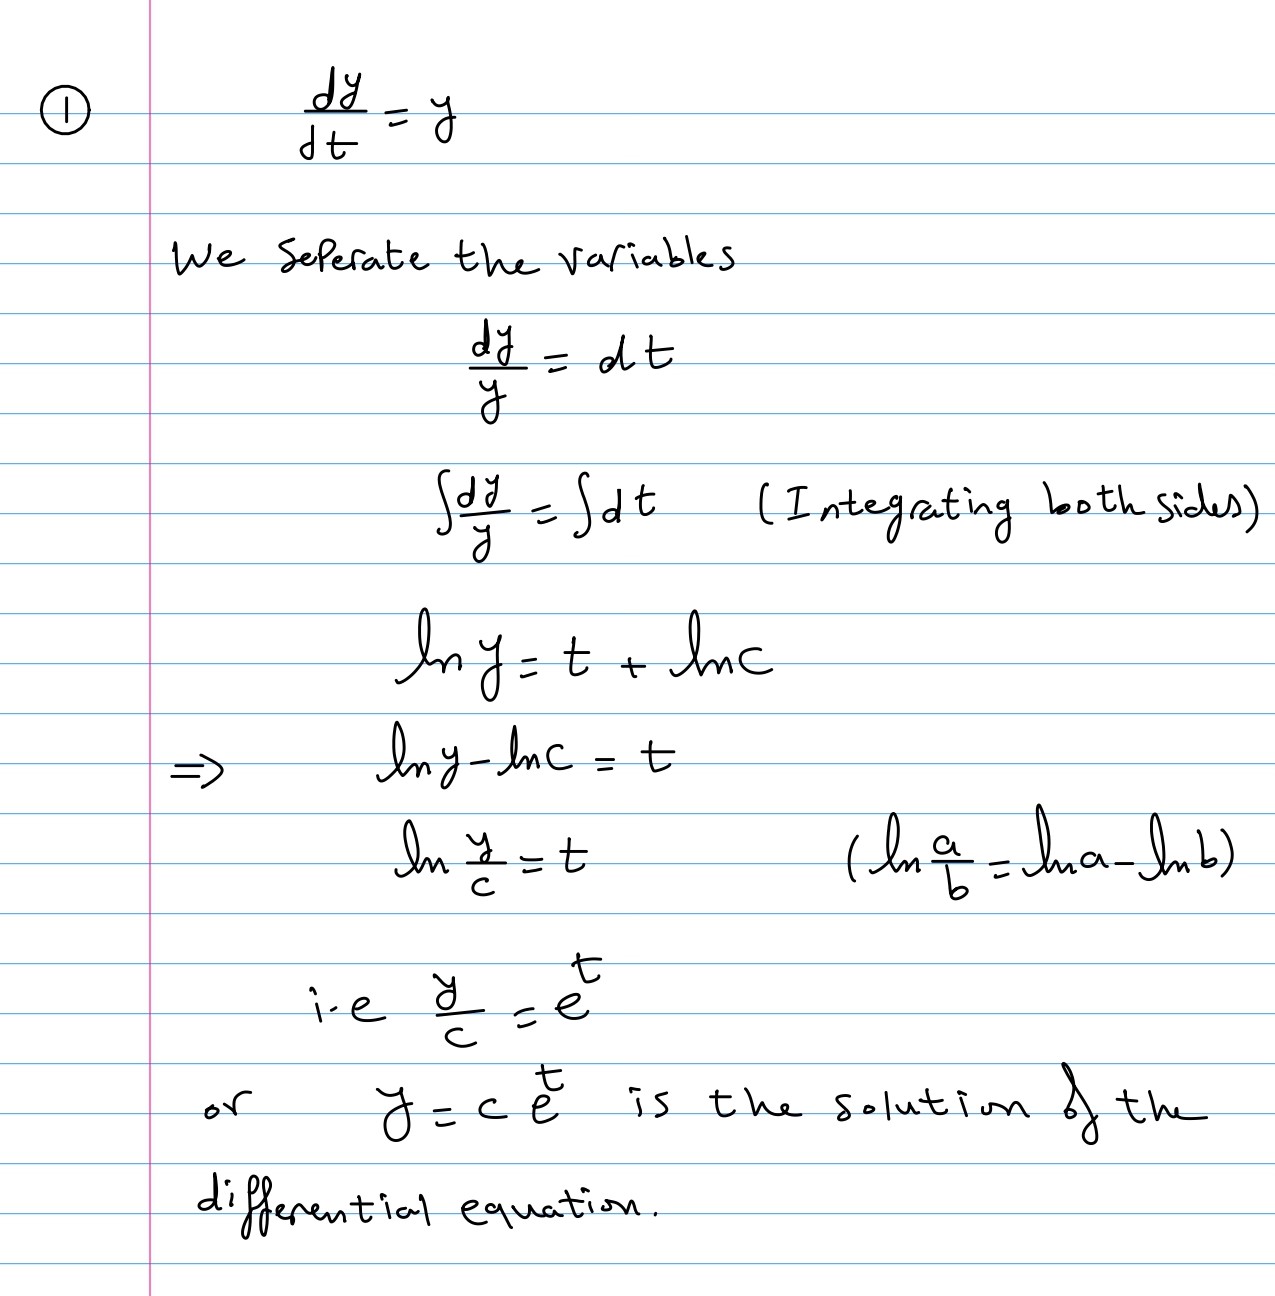 ① dy/dt = y
We Seperate the variables
dy/y = dt
∫dy/y = ∫dt (Integrating both sides)
ln y = t + ln c
⇒ ln y - ln c = t
ln y/c = t (ln a/b = ln a - ln b)
i.e y/c = e^t
or y = c e^t is the solution of the
differential equation.